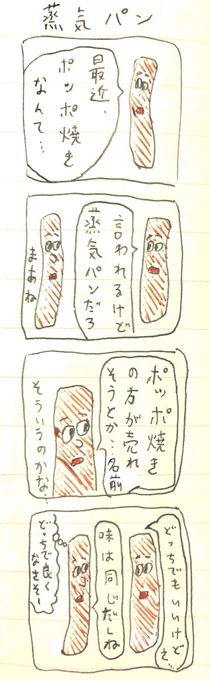 蒸気パン
最近、
ポッポ焼き
なんて…
言われるけど
蒸気パンだろ
まあね
ポッポ焼き
の方が売れ
そうとか…名前
そういうのかな…
どっちでもいいけど
味は同じだしね
どっちで良く
なさそー